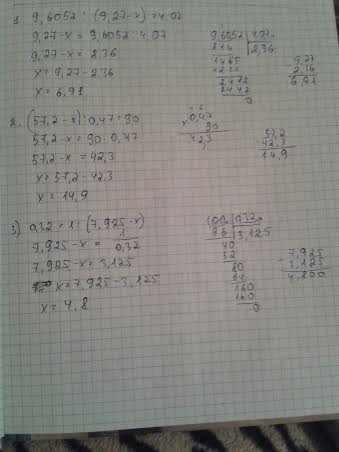 1. 9,6052 : (9,27-x)=4,07
9,27-x = 9,6052 : 4,07
9,27-x = 2,36
x = 9,27-2,36
x = 6,91
9,6052 | 4,07
2,36
1465
1221
2442
2442
0
- 9,27
2,36
6,91
2. (57,2-x) : 0,47=90
57,2-x = 90 · 0,47
57,2-x = 42,3
x = 57,2-42,3
x = 14,9
x 0,47
90
42,3
57,2
- 42,3
14,9
3) 0,32 = 1 : (7,925-x)
7,925-x = 1 / 0,32
7,925-x = 3,125
x = 7,925-3,125
x = 4,8
100 | 0,32
96 | 3,125
40
32
80
64
160
160
0
- 7,925
3,125
4,800